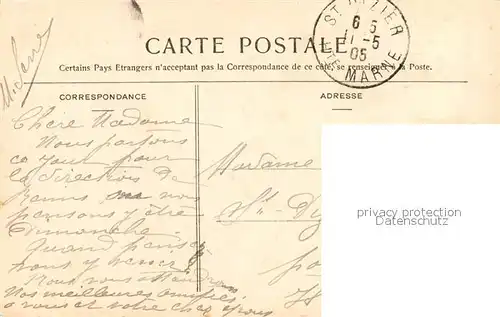 ST DIZIER
6 5
11 - 5
05
HTE MARNE
CARTE POSTALE
Certains Pays Etrangers n'acceptant pas la Correspondance de ce côté, se renseigner à la Poste.
CORRESPONDANCE
ADRESSE
Chère Madame
Nous partons
ce jour pour
la direction de
nous
pensons y être
Dimanche.
Quand pensez
vous y
Nous vous attendrons
Nos meilleures amitiés
à vous et votre cher époux
Madame
St-
privacy protection
Datenschutz